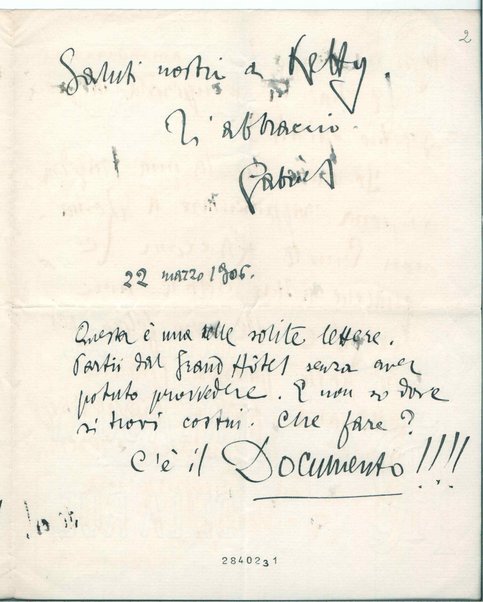 2
Saluti nostri a Ketty.
Ti abbraccio
Gabriel
22 marzo 1906.
Questa è una delle solite lettere.
Partii dal Grand Hôtel senza aver
potuto provvedere. E non so dove
si trovi costui. Che fare?
C'è il Documento!!!!
2840231